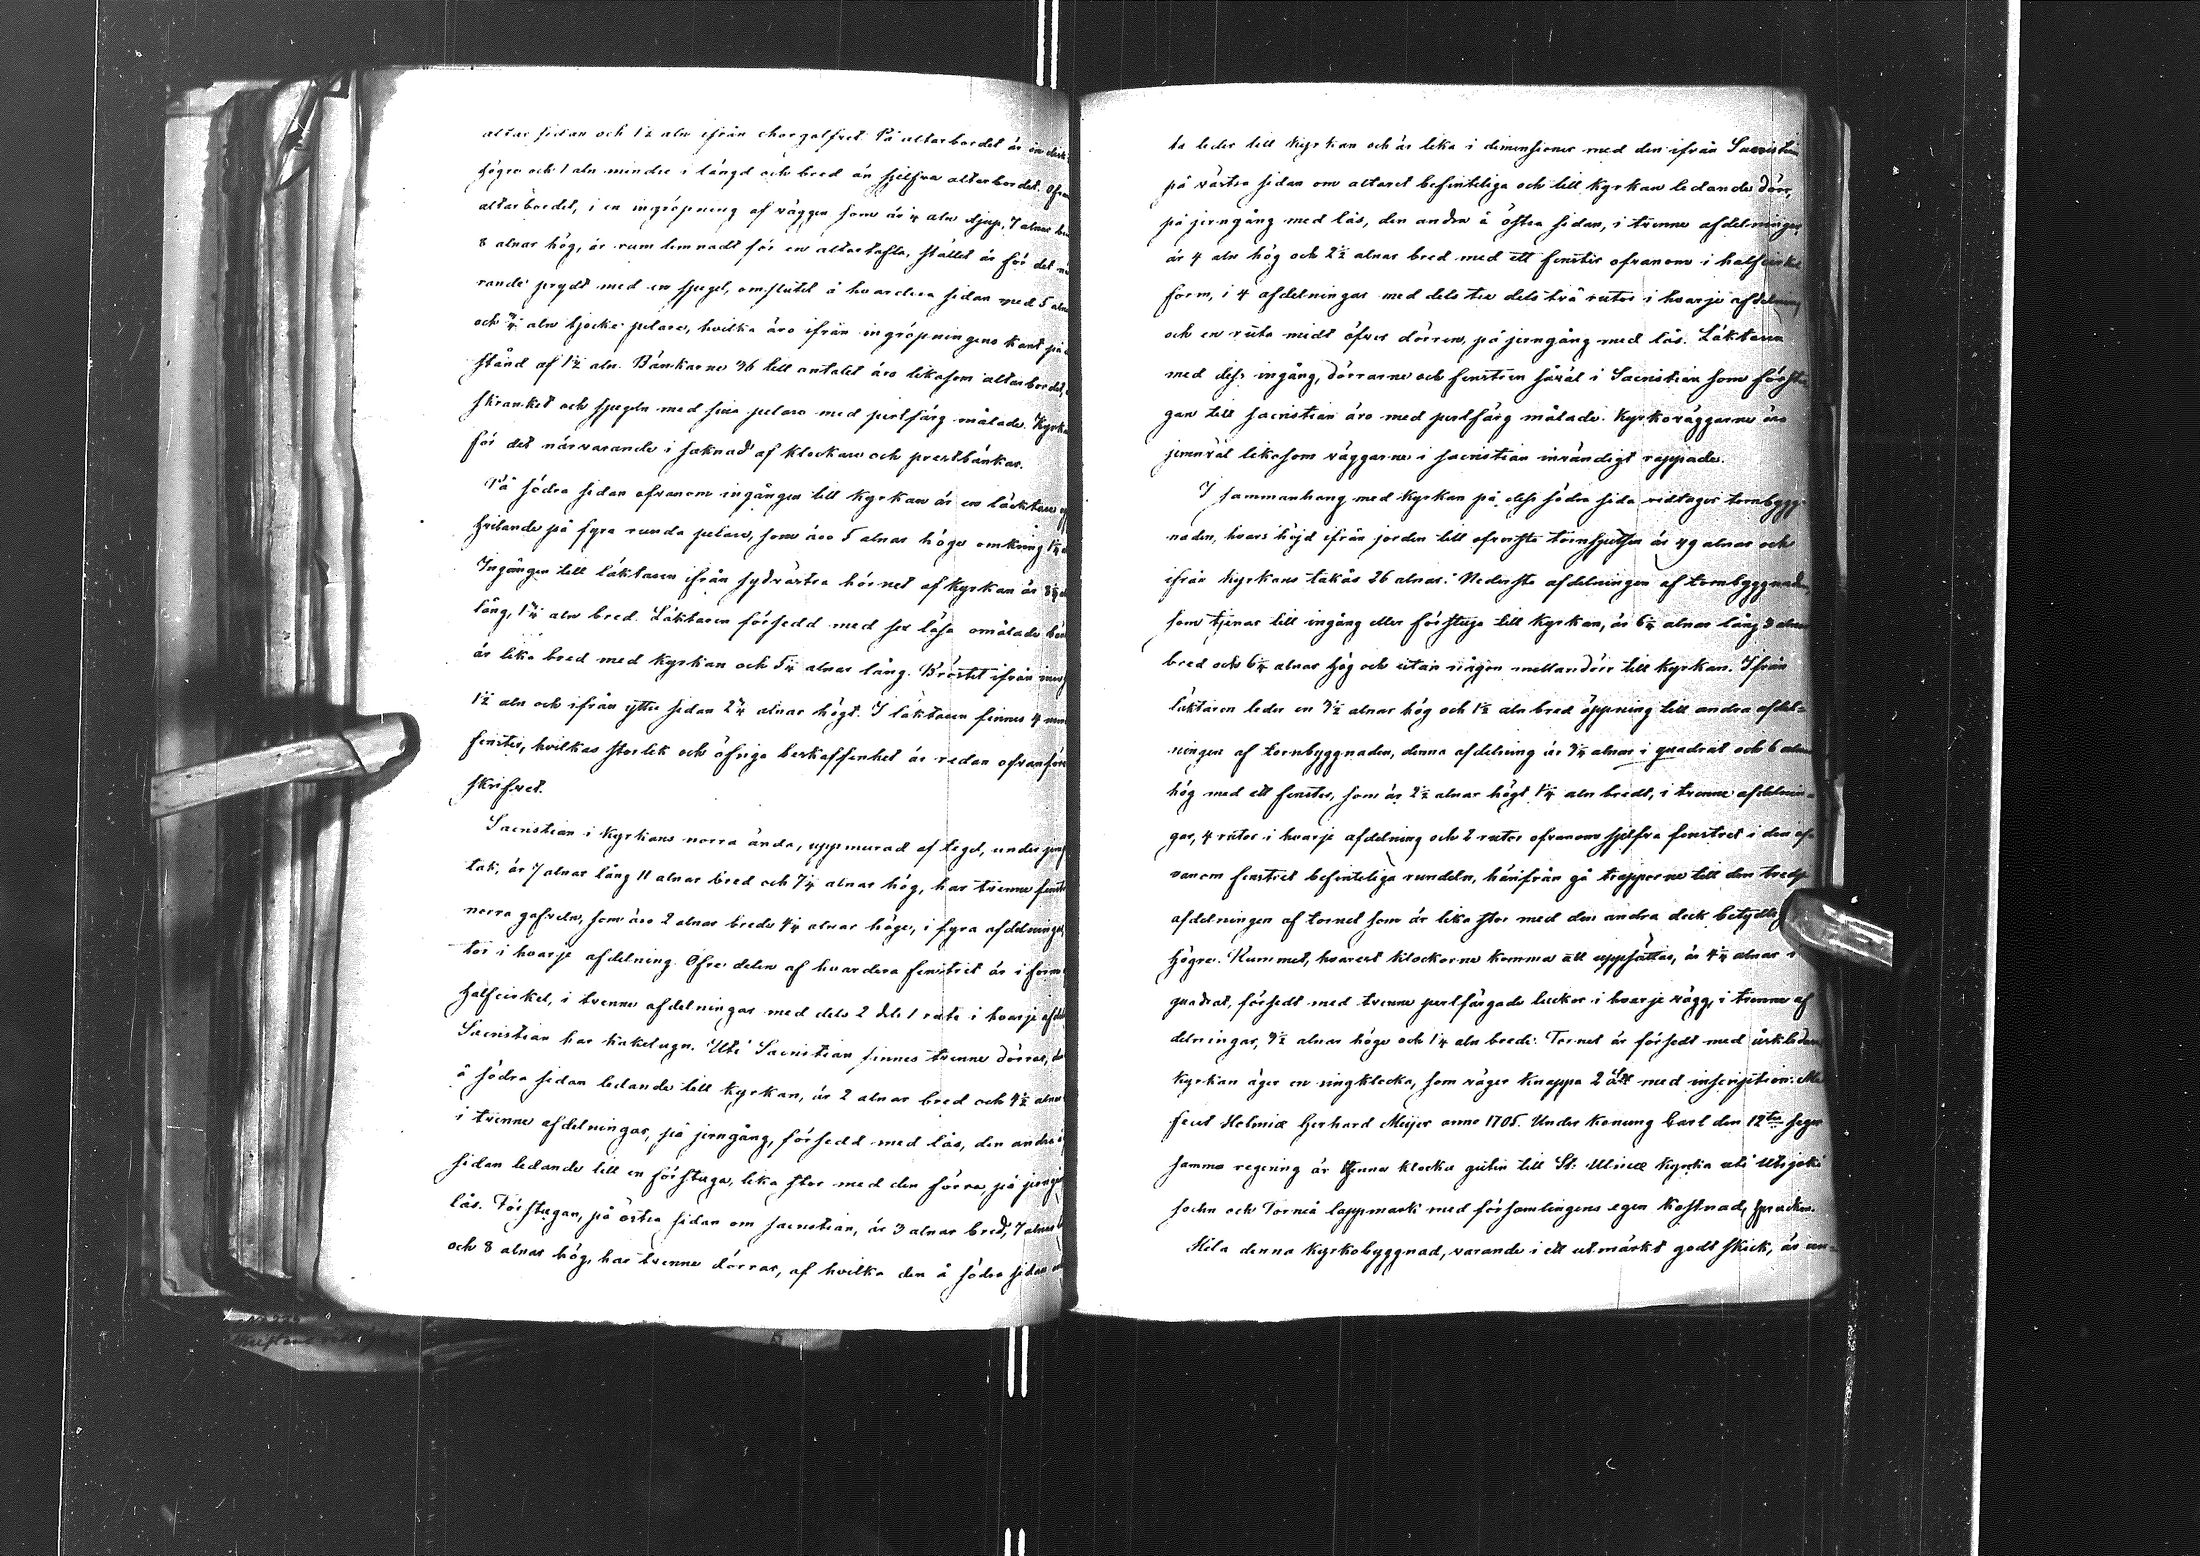 altar sidan och 1½ aln ifrån chorgolfvet. På altarbordet är en
högre och 1 aln mindre i längd och bred än sjelfva altarbordet. Ofvan
altarbordet, i en ingröpning af väggen som är ¼ aln djup, 7 alnar
8 alnar hög, är rum lemnadt för en altartafla, stället är för det
rande prydt med en spegel, omslutet å hvardera sidan med 5
och ¾ aln tjocke pelare, hvilka äro ifrån ingröpningens kant på
stånd af 1½ aln. Bänkarne 36 till antalet äro likasom altarbordet,
skranket och spegeln med sina pelare med perlfärg målade. Kyrkan
för det närvarande i saknad af klockare och prestbänkar.
På södra sidan ofvanom ingången till Kyrkan är en läcktare
hvilande på fyra runda pelare, som äro 5 alnar höge omkring
Ingången till läktaren ifrån sydvästra hörnet af Kyrkan är
lång, 1¾ aln bred. Läktaren försedd med sex lösa omålade
är lika bred med Kyrkan och 5¼ alnar lång. Bröstet ifrån
1½ aln och ifrån yttre sidan 2¾ alnar högt. I läktaren finnes 4
fenster, hvilkas storlek och öfriga beskaffenhet är redan ofvanföre
skrifvet.
Sacristian i Kyrkans norra ända, uppmurad af tegel, under
tak, är 7 alnar lång 11 alnar bred och 7¼ alnar hög, har tvenne
norra gafveln, som äro 2 alnar brede 4¼ alnar höge, i fyra afdelningar
tor i hvarje afdelning. Öfre delen af hvardera fenstret är i form
halfcirkel, i tvenne afdelningar med dels 2 dels 1 ruta i hvarje
Sacristian har kakelugn. Uti Sacristian finnes trenne dörrar,
å södra sidan ledande till Kyrkan, är 2 alnar bred och 4½ alnar
i tvenne afdelningar, på jerngång, försedd med lås, den andra
sidan ledande till en förstuga, lika stor med den förra, på
lås. Förstugan, på östra sidan om sacristian, är 3 alnar bred, 7 alnar
och 8 alnar hög, har tvenne dörrar, af hvilka den å södra sidan
ta leder till Kyrkan och är lika i dimensioner med den ifrån Sacristian
på västra sidan om altaret befinteliga och till Kyrkan ledande dörr,
på jerngång med lås, den andra å östra sidan, i tvenne afdelningar
är 4 aln hög och 2½ alnar bred med ett fenster ofvanom i halfcirkel
form, i 4 afdelningar med dels tre dels två rutor i hvarje afdelning
och en ruta midt öfver dörren, på jerngång med lås. Läktaren
med dess ingång, dörrarne och fenstren såväl i Sacristian som förstu
gan till sacristian äro med perlfärg målade. Kyrkoväggarne äro
jemväl likasom väggarne i sacristian invändigt rappade.
I sammanhang med Kyrkan på dess södra sida vidtager tornbygg
naden, hvars höjd ifrån jorden till öfversta tornspetsen är 49 alnar och
ifrån Kyrkans takås 26 alnar. Nedersta afdelningen af tornbyggnaden,
som tjenar till ingång eller förstuga till Kyrkan, är 6¼ alnar lång 9 alnar
bred och 6¼ alnar hög och utan någon mellandörr till Kyrkan. Ifrån
läktaren leder en 3½ alnar hög och 1½ aln bred öppning till andra afdel=
ningen af tornbyggnaden, denna afdelning är 9¼ alnar i quadrat och 6 alnar
hög med ett fenster, som är 2½ alnar högt 1¼ aln bredt, i tvenne afdelnin=
gar, 4 rutor i hvarje afdelning och 2 rutor ofvanom sjelfva fenstret i den of=
vanom fenstret befinteliga rundeln, härifrån gå trapporne till den tredje
afdelningen af tornet som är lika stor med den andra dock betydligt
högre. Rummet, hvarest klockorne komma att uppsättas, är 4¼ alnar i
quadrat, försedt med tvenne perlfärgade luckor i hvarje vägg, i tvenne af
delningar, 3½ alnar höge och 1¼ aln brede. Tornet är försedt med åskledare
Kyrkan äger en ringklocka, som väger knappa 2 med inscription: Me
fecit Holmiæ Gerhard Meijer anno 1705. Under Konung Carl den 12te
samma regering är denna klocka gutin till St: Ulricæ Kyrcka uti Utsjoki
sochn och Torneå lappmark med församlingens egen kostnad, sprucken.
Hela denna Kyrkobyggnad, varande i ett utmärkt godt skick, är